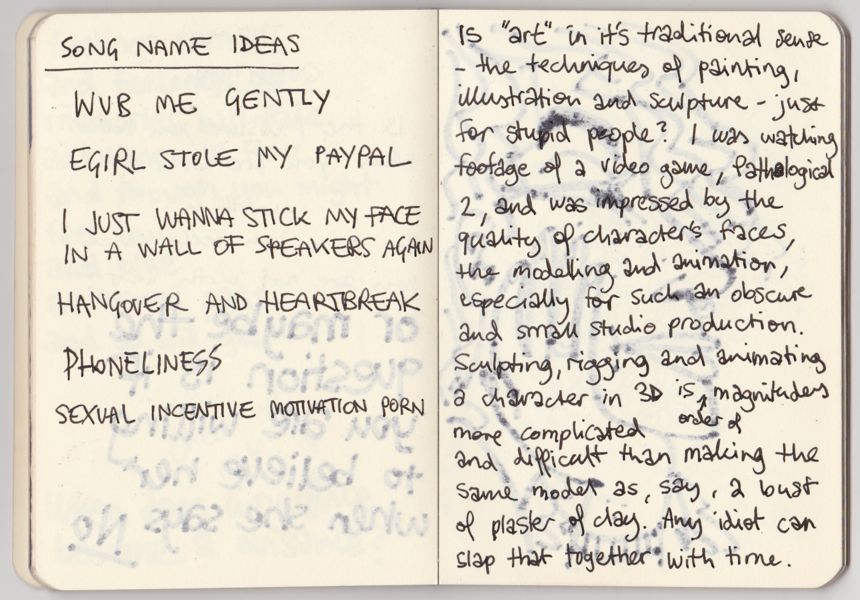 SONG NAME IDEAS
WUB ME GENTLY
EGIRL STOLE MY PAYPAL
I JUST WANNA STICK MY FACE
IN A WALL OF SPEAKERS AGAIN
HANGOVER AND HEARTBREAK
PHONELINESS
SEXUAL INCENTIVE MOTIVATION PORN
Is "art" in it's traditional sense
- the techniques of painting,
illustration and sculpture - just
for stupid people? I was watching
footage of a video game, Pathological
2, and was impressed by the
quality of character's faces,
the modelling and animation,
especially for such an obscure
and small studio production.
Sculpting, rigging and animating
a character in 3D is magnitudes
order of
more complicated
and difficult than making the
same model as, say, a bust
of plaster of clay. Any idiot can
slap that together with time.